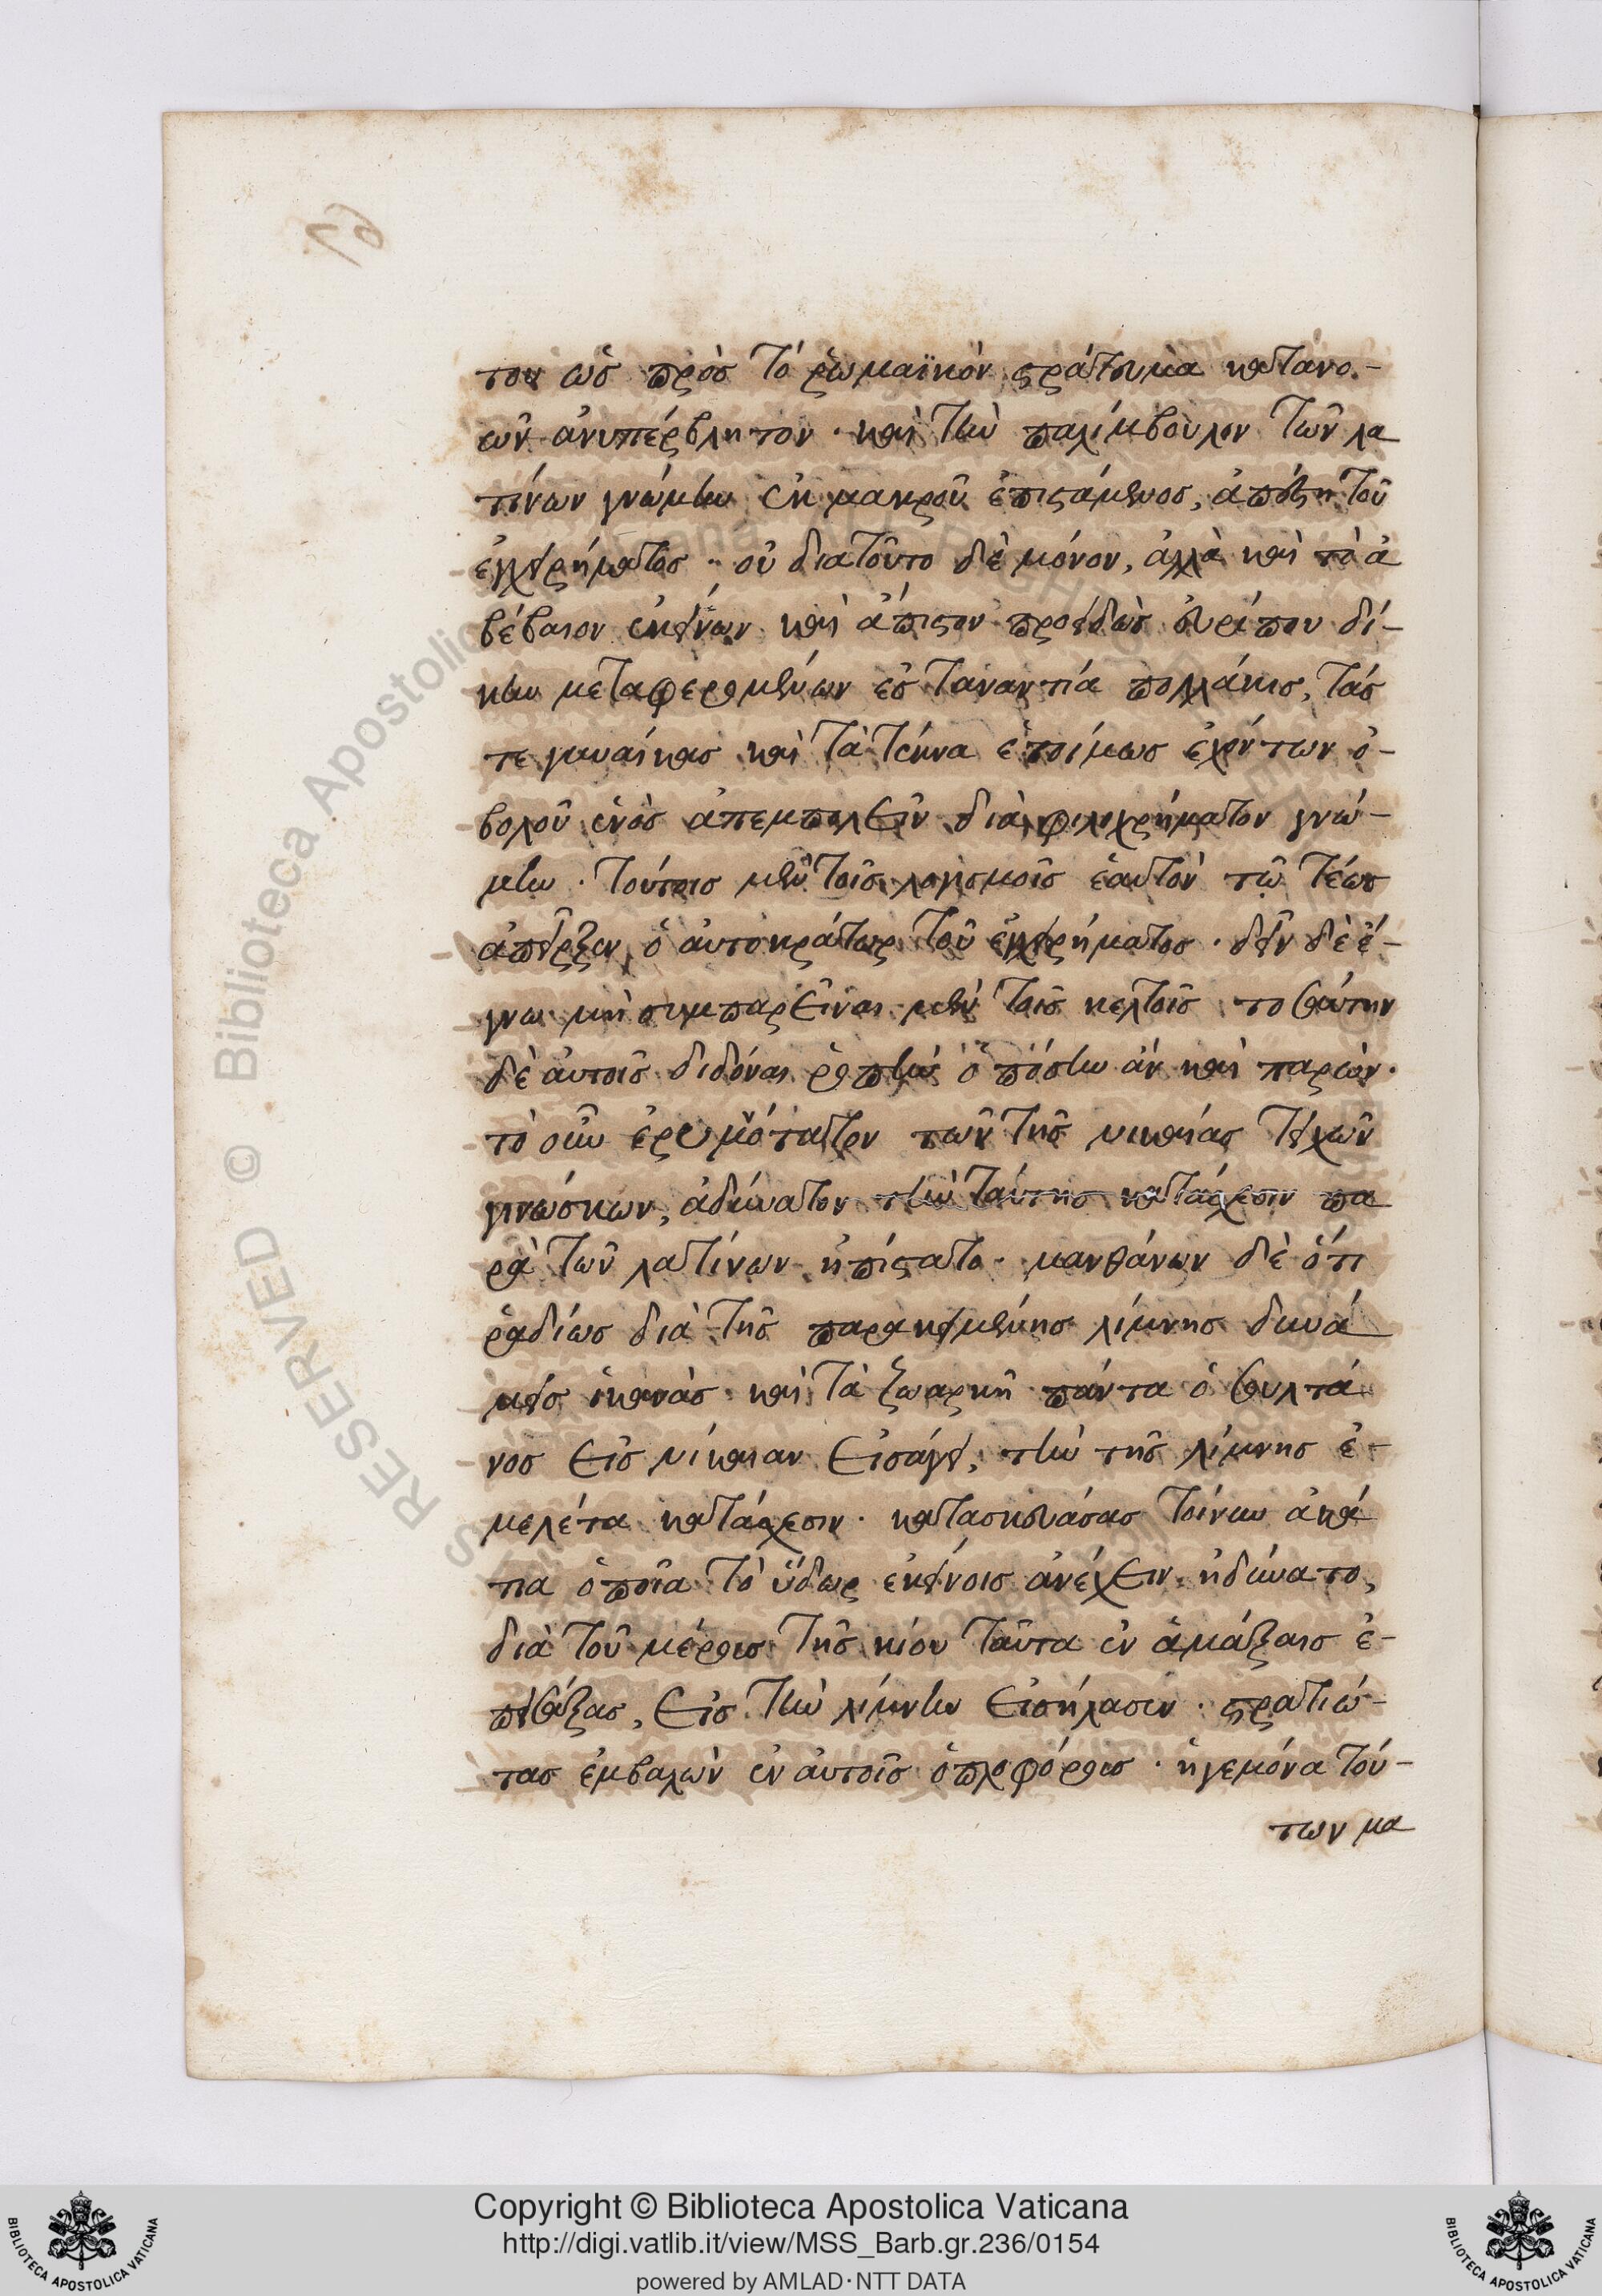 του ὡς πρὸς τὸ ῥωμαϊκὸν στράτευμα κατανο-
ῶν ἀνυπέρβλητον· καὶ τὴν παλίμβουλον τῶν λα
τίνων γνώμην ἐκ μακροῦ ἐπιστάμενος, ἀπέστη τοῦ
ἐγχειρήματος· οὐ διατοῦτο δὲ μόνον, ἀλλὰ καὶ τὸ ἀ
βέβαιον ἐκείνων καὶ ἄπιστον προειδὼς εὐρίπου δί-
κην μεταφερομένων ἐς τἀναντία πολλάκις, τάς
τε γυναίκας καὶ τὰ τέκνα ἑτοίμως ἐχόντων ὀ-
βολοῦ ἑνὸς ἀπεμπολεῖν διὰ φιλοχρήματον γνώ-
μην. τούτοις μὲν τοῖς λογισμοῖς ἑαυτὸν τῶ τέως
ἀπεῖρξεν ὁ αὐτοκράτωρ τοῦ ἐγχειρήματος. δεῖν δὲ ἔ-
γνω μὴ συμπαρεῖναι μὲν τοῖς κελτοῖς τοσαύτην
δὲ αὐτοῖς διδόναι ῥοπὴν ὁπόσην ἂν καὶ παρών.
τὸ οὖν ἐρυμνότατον τῶν τῆς νικαίας τειχῶν
γινώσκων, ἀδύνατον τὴν ταύτης κατάσχεσιν πα
ρὰ τῶν λατίνων ἠπίστατο. μανθάνων δὲ ὅτι
ῥαδίως διὰ τῆς παρακειμένης λίμνης δυνά
μεις ἱκανὰς καὶ τὰ ζωαρκῆ πάντα ὁ σουλτά
νος εἰς νίκαιαν εἰσάγει, τὴν τῆς λίμνης ἐ-
μελέτα κατάσχεσιν. κατασκευάσας τοίνυν ἀκά
τια ὁποῖα τὸ ὕδωρ ἐκείνοις ἀνέχειν ἠδύνατο,
διὰ τοῦ μέρους τῆς κίου ταῦτα ἐν ἁμάξαις ἐ-
πεισάξας, εἰς τὴν λίμνην εἰσήλασεν. στρατιώ-
τας ἐμβαλὼν ἐν αὐτοῖς ὁπλοφόρους. ἡγεμόνα τού-
των μα
Copyright © Biblioteca Apostolica Vaticana
http://digi.vatlib.it/view/MSS_Barb.gr.236/0154
powered by AMLAD·NTT DATA
BIBLIOTECA APOSTOLICA VATICANA
BIBLIOTECA APOSTOLICA VATICANA